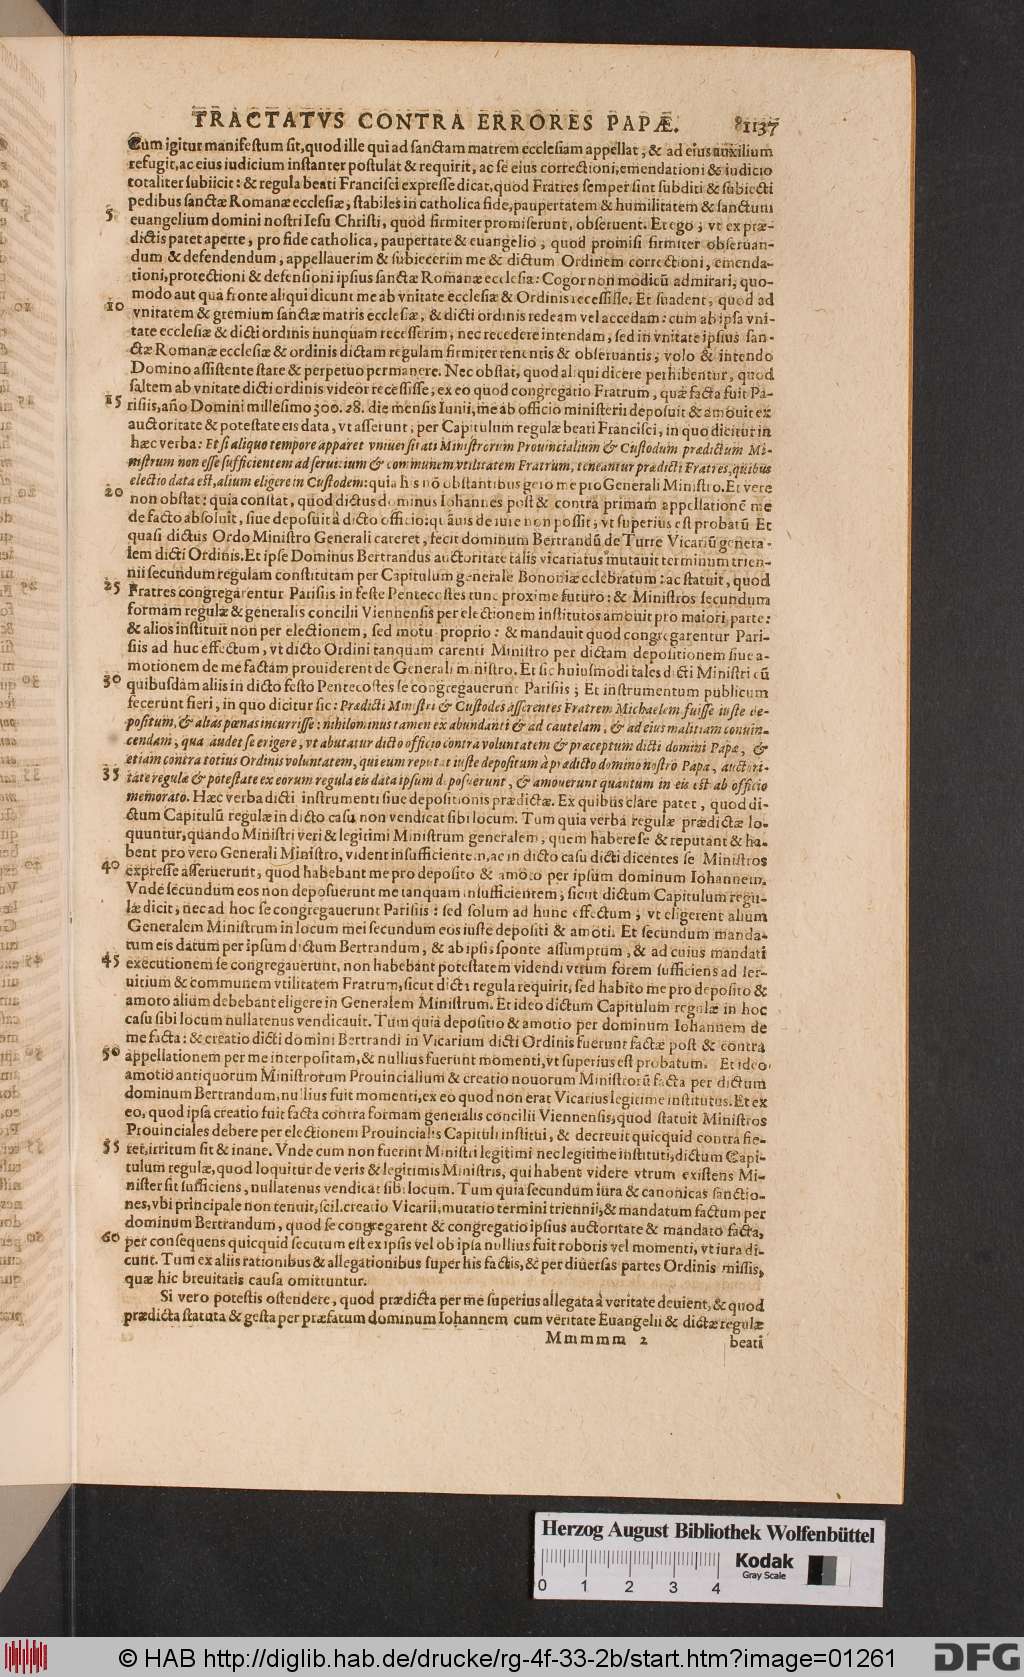 TRACTATVS CONTRA ERRORES PAPÆ. 1137
Cum igitur manifestum sit, quod ille qui ad sanctam matrem ecclesiam appellat, & ad eius auxilium
refugit, ac eius iudicium instanter postulat & requirit, ac se eius correctioni, emendationi & iudicio
totaliter subiicit: & regula beati Francisci expresse dicat, quod Fratres semper sint subditi & subiecti
pedibus sanctæ Romanæ ecclesiæ, stabiles in catholica fide, paupertatem & humilitatem & sanctum
5 euangelium domini nostri Iesu Christi, quod firmiter promiserunt, obseruent. Et ego, vt ex præ-
dictis patet aperte, pro fide catholica, paupertate & euangelio, quod promisi firmiter obseruan-
dum & defendendum, appellauerim & subiecerim me & dictum Ordinem correctioni, emenda-
tioni, protectioni & defensioni ipsius sanctæ Romanæ ecclesiæ: Cogor non modicū admirari, quo-
modo aut qua fronte aliqui dicunt me ab vnitate ecclesiæ & Ordinis recessisse. Et suadent, quod ad
10 vnitatem & gremium sanctæ matris ecclesiæ, & dicti ordinis redeam vel accedam: cum ab ipsa vni-
tate ecclesiæ & dicti ordinis nunquam recesserim, nec recedere intendam, sed in vnitate ipsius san-
ctæ Romanæ ecclesiæ & ordinis dictam regulam firmiter tenentis & obseruantis, volo & intendo
Domino assistente stare & perpetuo permanere. Nec obstat, quod aliqui dicere perhibentur, quod
saltem ab vnitate dicti ordinis videor recessisse, ex eo quod congregatio Fratrum, quæ facta fuit Pa-
15 risiis, año Domini millesimo 300. 28. die mensis Iunii, me ab officio ministerii deposuit & amouit ex
auctoritate & potestate eis data, vt asserunt, per Capitulum regulæ beati Francisci, in quo dicitur in
hæc verba: Et si aliquo tempore apparet vniuersitati Ministrorum Prouincialium & Custodum prædictum Mi-
nistrum non esse sufficientem ad seruitium & communem vtilitatem Fratrum, teneantur prædicti Fratres, quibus
electio data est, alium eligere in Custodem: quia his nō obstantibus gero me pro Generali Ministro. Et vere
20 non obstat: quia constat, quod dictus dominus Iohannes post & contra primam appellationē me
de facto absoluit, siue deposuit à dicto officio: quāuis de iure non possit, vt superius est probatū Et
quasi dictus Ordo Ministro Generali careret, fecit dominum Bertrandū de Turre Vicariū genera-
lem dicti Ordinis. Et ipse Dominus Bertrandus auctoritate talis vicariatus mutauit terminum trien-
nii secundum regulam constitutam per Capitulum generale Bononiæ celebratum: ac statuit, quod
25 Fratres congregarentur Parisiis in feste Pentecostes tunc proxime futuro: & Ministros secundum
formam regulæ & generalis concilii Viennensis per electionem institutos amouit pro maiori parte:
& alios instituit non per electionem, sed motu proprio: & mandauit quod congregarentur Pari-
siis ad huc effectum, vt dicto Ordini tanquam carenti Ministro per dictam depositionem siue a-
motionem de me factam prouiderent de Generali ministro. Et sic huiusmodi tales dicti Ministri cū
30 quibusdam aliis in dicto festo Pentecostes se congregauerunt Parisiis; Et instrumentum publicum
fecerunt fieri, in quo dicitur sic: Prædicti Ministri & Custodes asserentes Fratrem Michaelem fuisse iuste de-
positum, & altas pœnas incurrisse: nihilominus tamen ex abundanti & ad cautelam, & ad eius malitiam conuin-
cendam, qua audet se erigere, vt abutatur dicto officio contra voluntatem & præceptum dicti domini Papæ, &
etiam contra totius Ordinis voluntatem, qui eum reputat iuste depositum à prædicto domino nostro Papa, auctori-
35 tate regulæ & potestate ex eorum regula eis data ipsum deposuerunt, & amouerunt quantum in eis est ab officio
memorato. Hæc verba dicti instrumenti siue depositionis prædictæ. Ex quibus clare patet, quod di-
ctum Capitulū regulæ in dicto casu non vendicat sibi locum. Tum quia verba regulæ prædictæ lo-
quuntur, quando Ministri veri & legitimi Ministrum generalem, quem habere se & reputant & ha-
bent pro vero Generali Ministro, vident insufficientem, ac in dicto casu dicti dicentes se Ministros
40 expresse asseruerunt, quod habebant me pro deposito & amoto per ipsum dominum Iohannem.
Vnde secundum eos non deposuerunt me tanquam insufficientem, sicut dictum Capitulum regu-
læ dicit, nec ad hoc se congregauerunt Parisiis: sed solum ad hunc effectum, vt eligerent alium
Generalem Ministrum in locum mei secundum eos iuste depositi & amoti. Et secundum manda-
tum eis datum per ipsum dictum Bertrandum, & ab ipsis sponte assumptum, & ad cuius mandati
45 executionem se congregauerunt, non habebant potestatem videndi vtrum forem sufficiens ad ser-
uitium & communem vtilitatem Fratrum, sicut dicta regula requirit, sed habito me pro deposito &
amoto alium debebant eligere in Generalem Ministrum. Et ideo dictum Capitulum regulæ in hoc
casu sibi locum nullatenus vendicauit. Tum quia depositio & amotio per dominum Iohannem de
me facta: & creatio dicti domini Bertrandi in Vicarium dicti Ordinis fuerunt factæ post & contra
50 appellationem per me interpositam, & nullius fuerunt momenti, vt superius est probatum. Et ideo
amotio antiquorum Ministrorum Prouincialium & creatio nouorum Ministrorū facta per dictum
dominum Bertrandum, nullius fuit momenti, ex eo quod non erat Vicarius legitime institutus. Et ex
eo, quod ipsa creatio fuit facta contra formam generalis concilii Viennensis, quod statuit Ministros
Prouinciales debere per electionem Prouincialis Capituli institui, & decreuit quicquid contra fie-
55 ret, irritum sit & inane. Vnde cum non fuerint Ministri legitimi nec legitime instituti, dictum Capi-
tulum regulæ, quod loquitur de veris & legitimis Ministris, qui habent videre vtrum existens Mi-
nister sit sufficiens, nullatenus vendicat sibi locum. Tum quia secundum iura & canonicas sanctio-
nes, vbi principale non tenuit, scil. creatio Vicarii, mutatio termini triennii, & mandatum factum per
dominum Bertrandum, quod se congregarent & congregatio ipsius auctoritate & mandato facta,
60 per consequens quicquid secutum est ex ipsis vel ob ipsa nullius fuit roboris vel momenti, vt iura di-
cunt. Tum ex aliis rationibus & allegationibus super his factis, & per diuersas partes Ordinis missis,
quæ hic breuitatis causa omittuntur.
Si vero potestis ostendere, quod prædicta per me superius allegata à veritate deuient, & quod
prædicta statuta & gesta per præfatum dominum Iohannem cum veritate Euangelii & dictæ regulæ
Mmmmm 2 beati
Herzog August Bibliothek Wolfenbüttel
0 1 2 3 4
Kodak
Gray Scale
© HAB http://diglib.hab.de/drucke/rg-4f-33-2b/start.htm?image=01261
DFG